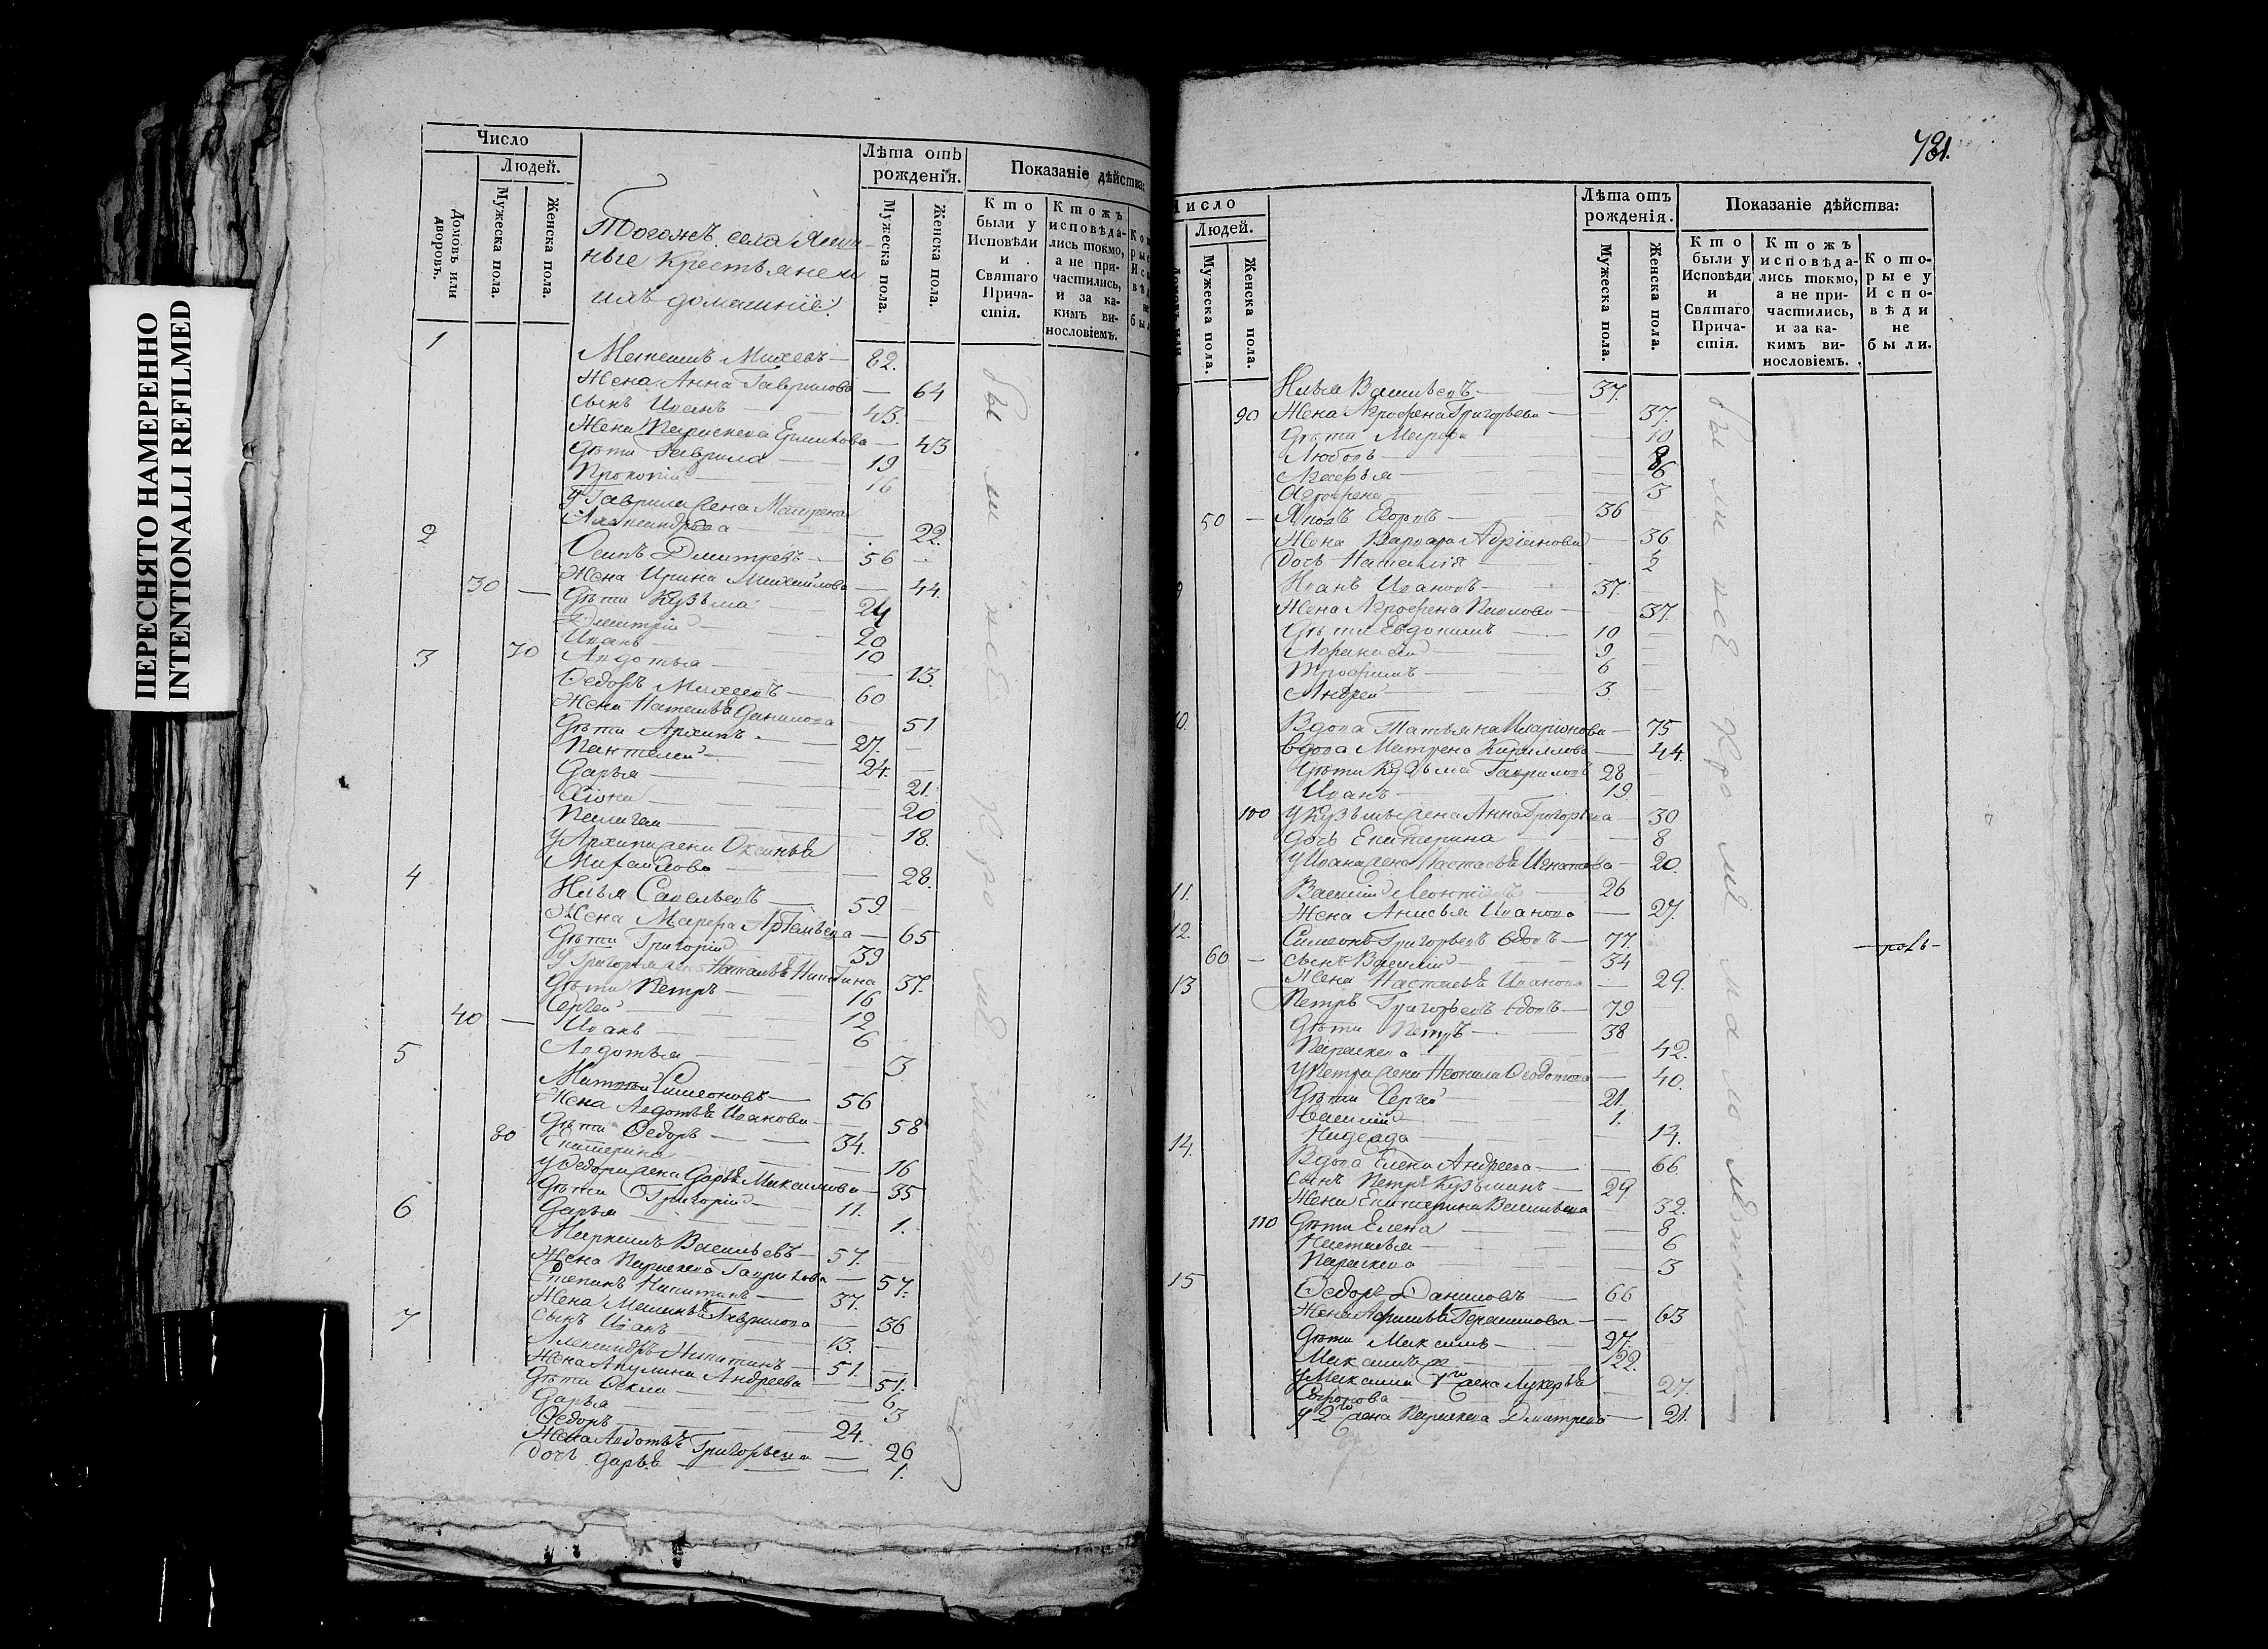 ПЕРЕСНЯТО НАМЕРЕННО
INTENTIONALLI REFILMED
Число
Людей.
Домовъ или дворовъ.
Мужеска пола.
Женска пола.
Лѣта отъ рожденія.
Мужеска пола.
Женска пола.
Показаніе дѣйства:
Кто были у Исповѣди и Святаго Прича-стія.
Ктожъ исповѣда-лись токмо, а не при-частились, и за ка-кимъ ви-нословіемъ.
Тогожъ села
ные Крестьяне и
ихъ домашніе:
1
Михевъ — 82.
Жена Анна Гаврилова — 64
Сынъ Иванъ — 43.
Жена Параскева — 43
Дѣти Гаврила — 19
Прокопій — 16
У Гаврилы жена Матрена
Александрова — 22.
2 Осипъ Дмитревъ — 56
Жена Ирина Михайлова — 44.
30 — Дѣти Кузьма — 24
Дмитрій — 20
Иванъ — 10
70 Авдотья — 13.
3 Ѳедоръ Михеевъ — 60
Жена Наталья Данилова — 51
Дѣти Архипъ — 27.
Пантелей — 24.
Дарья — 21.
20
Пелагея — 18.
У Архипа жена Оксинья
Михайлова — 28.
4 Илья Савельевъ — 59
Жена Марфа Артемьева — 65
Дѣти Григорій — 39
У Григорья жена Наталья Никитина 37.
Дѣти Петръ — 16
Сергей — 12
40 — Иванъ — 6
Авдотья — 3
5 Симеоновъ — 56
Жена Авдотья Иванова — 58
Дѣти Ѳедоръ — 34.
80 Екатерина — 16
У Ѳедора жена Дарья Максимова — 35
Дѣти Григорій — 11.
Дарья — 1.
6 Васильевъ — 57.
Жена Параскева Гаврилова — 57.
Степанъ Никитинъ — 37.
Жена Гаврилова — 36
Сынъ Иванъ — 13.
7 Александръ Никитинъ — 51.
Жена Акулина Андреева — 51.
Дѣти Ѳекла — 6
Дарья — 3
Ѳедоръ — 24.
Жена Авдотья Григорьева — 26
Дочь Дарья — 1.
были всѣ кромѣ малолѣтныхъ
781.
Число
Людей.
Мужеска пола.
Женска пола.
Лѣта отъ рожденія.
Мужеска пола.
Женска пола.
Показаніе дѣйства:
Кто были у Исповѣди и Святаго Прича-стія.
Ктожъ исповѣда-лись токмо, а не при-частились, и за ка-кимъ ви-нословіемъ.
Кото-рые у Испо-вѣди не были.
Илья Васильевъ — 37.
90 Жена Агрофена Григорьева — 37.
Дѣти Марфа — 10
Любовь — 8
6
Агрофена — 3
50 — Яковъ — 36
Жена Варвара Адріанова — 36
Дочь Наталія — 2
Иванъ Ивановъ — 37.
Жена Агрофена Павлова — 37.
Дѣти Евдокимъ — 10
Афанасій — 9
Трофимъ — 6
Андрей — 3
10. Вдова Татьяна Иларіонова — 75
Вдова Матрена Кириллова — 44.
Дѣти Кузьма Гавриловъ 28
Иванъ — 19
100 У Кузьмы жена Анна Григорьева — 30
Дочь Екатерина — 8
У Ивана жена Настасья Игнатова — 20.
11. Василій Леонтіевъ — 26
Жена Анисья Иванова — 27.
12. Симеонъ Григорьевъ вдовъ — 77.
60 — Сынъ Василій — 34
Жена Настасья Иванова — 29.
13 Петръ Григорьевъ вдовъ — 79
Дѣти Петръ — 38
Параскева — 42.
У Петра жена Неонила Ѳедотова — 40.
Дѣти Сергей — 21.
Василій — 1.
14.
14. Вдова Елена Андреева — 66.
Сынъ Петръ Кузьминъ — 29
Жена Екатерина Васильева 32.
110 Дѣти Елена — 8
Наталья — 6
Параскева — 3
15 Ѳедоръ Даниловъ — 66
Жена Герасимова — 63
Дѣти Максимъ — 27.
Максимъ — 22.
У Максима жена Лукерья
27.
У 2го жена Параскева Дмитрева — 21.
были всѣ кромѣ малолѣтныхъ